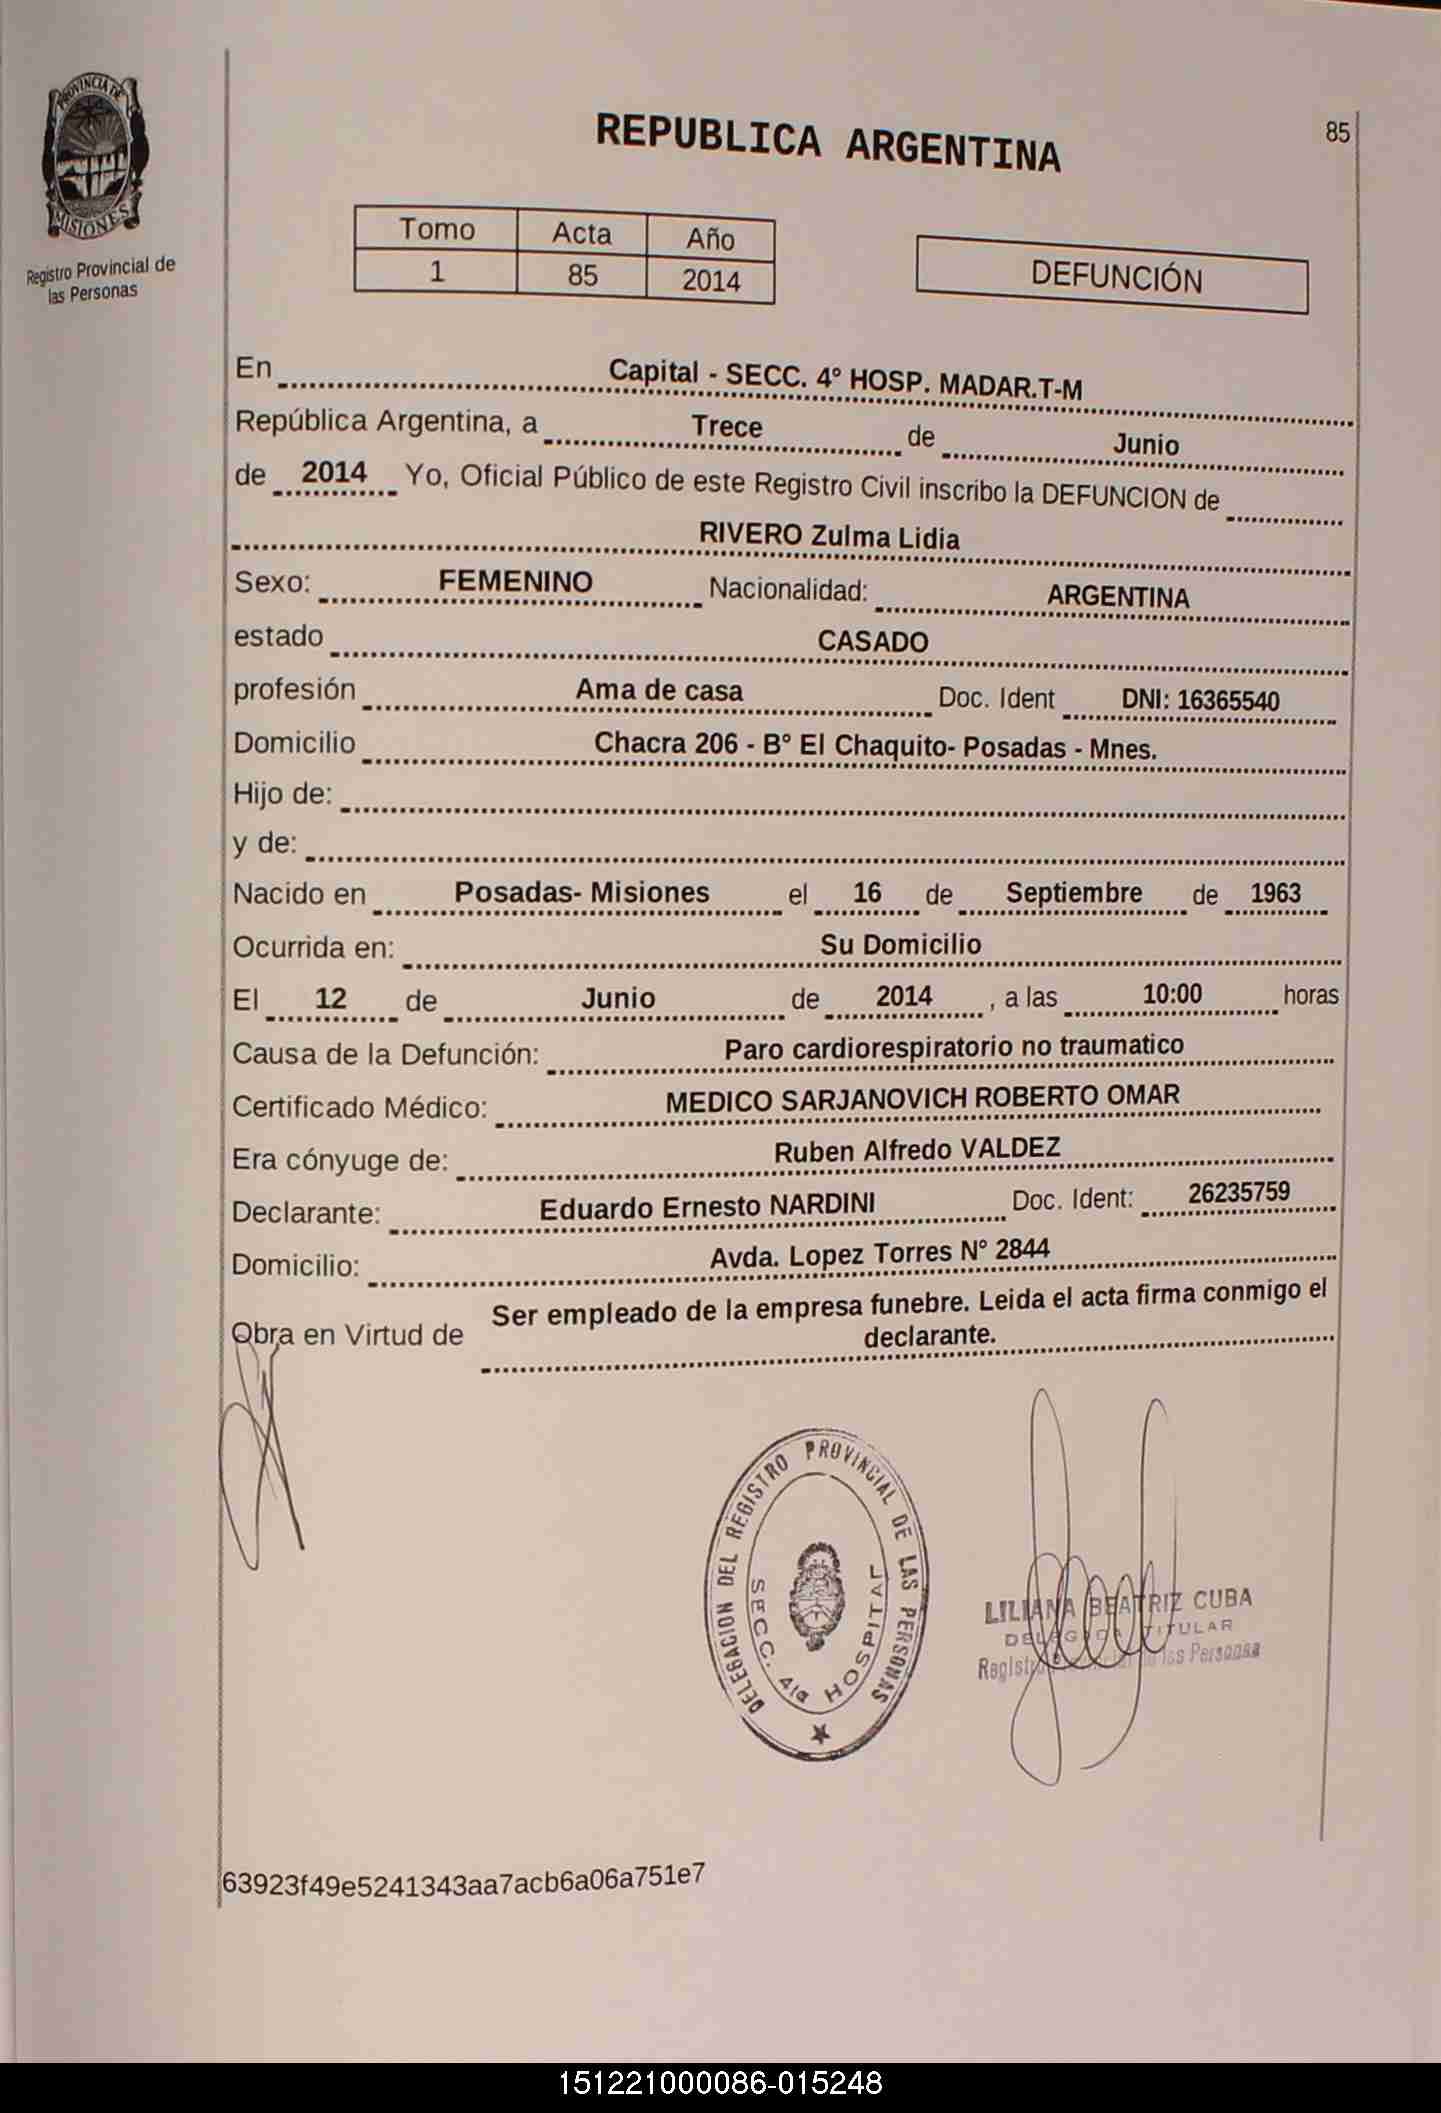 PROVINCIA DE
MISIONES
Registro Provincial de
las Personas
REPUBLICA ARGENTINA
85
Tomo Acta Año
1 85 2014
DEFUNCIÓN
En Capital - SECC. 4° HOSP. MADAR.T-M
República Argentina, a Trece de Junio
de 2014 Yo, Oficial Público de este Registro Civil inscribo la DEFUNCION de
RIVERO Zulma Lidia
Sexo: FEMENINO Nacionalidad: ARGENTINA
estado CASADO
profesión Ama de casa Doc. Ident DNI: 16365540
Domicilio Chacra 206 - B° El Chaquito- Posadas - Mnes.
Hijo de:
y de:
Nacido en Posadas- Misiones el 16 de Septiembre de 1963
Ocurrida en: Su Domicilio
El 12 de Junio de 2014 , a las 10:00 horas
Causa de la Defunción: Paro cardiorespiratorio no traumatico
Certificado Médico: MEDICO SARJANOVICH ROBERTO OMAR
Era cónyuge de: Ruben Alfredo VALDEZ
Declarante: Eduardo Ernesto NARDINI Doc. Ident: 26235759
Domicilio: Avda. Lopez Torres N° 2844
Obra en Virtud de Ser empleado de la empresa funebre. Leida el acta firma conmigo el
declarante.
DELEGACION DEL REGISTRO PROVINCIAL DE LAS PERSONAS
SECC. 4ta HOSPITAL
LILIANA BEATRIZ CUBA
DELEGADA TITULAR
Registro Provincial de las Personas
63923f49e5241343aa7acb6a06a751e7
151221000086-015248